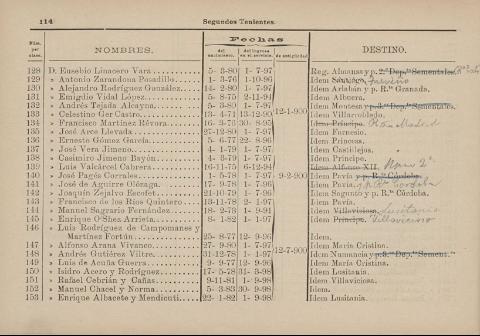 114 Segundos Tenientes.
Núm. por clase. NOMBRES. Fechas DESTINO.
del nacimiento. del ingreso en el servicio. de antigüedad
128 D. Eusebio Limacero Vara 5- 3-80 1- 7-97 Reg. Almansa y p. 2.º Dep.º Sementales.
129 » Antonio Zarandona Posadillo 1- 3-76 1-10-96 Idem
130 » Alejandro Rodríguez González 14- 2-80 1- 7-97 Idem Arlabán y p. R.ª Granada.
131 » Emigdio Vidal López 5- 8-75 2-11-94 Idem Albuera.
132 » Andrés Tejada Alcayna 5- 3-80 1- 7-97 12-1-900 Idem Montesa y p. 3.º Dep.º Sementales.
133 » Celestino Ger Castro 13- 4-71 13-12-90 Idem Villarrobledo.
134 » Francisco Martínez Révora 16- 3-76 30- 8-95 Idem Príncipe.
135 » José Arce Llevada 27-12-80 1- 7-97 Idem Farnesio.
136 » Ernesto Gómez García 5- 6-77 22- 8-96 Idem Princesa.
137 » José Vera Jimeno 4- 1-79 1- 7-97 Idem Castillejos.
138 » Casimiro Jimeno Bayón 4- 3-79 1- 7-97 Idem Príncipe.
139 » Luis Valcárcel Cabrera 16-11-75 6-12-94 Idem Alfonso XII.
140 » José Pagés Corrales 1- 5-78 1- 7-97 9-2-900 Idem Pavía y p. R.ª Córdoba.
141 » José de Aguirre Olózaga 17- 9-78 1- 7-96 Idem Pavía. y p. R.ª Córdoba
142 » Joaquín Zejalvo Escofet 21-10-79 1- 7-96 Idem Sagunto y p. R.ª Córdoba.
143 » Francisco de los Ríos Quintero 13-11-78 2- 1-97 Idem Pavía.
144 » Manuel Sagrario Fernández 18- 2-78 1- 8-91 Idem Villaviciosa. Lusitania
145 » Enrique O'Shea Arrieta 8- 1-82 1- 7-97 Idem Príncipe. Villavicioso
146 » Luis Rodríguez de Campomanes y
Martínez Fortún 25- 8-77 12- 9-96 Idem.
147 » Alfonso Arana Vivanco 27- 9-80 1- 7-97 Idem María Cristina.
148 » Andrés Gutiérrez Viltre 31-12-78 1- 1-97 12-7-900 Idem Numancia y p. 3.º Dep.º Sement.º
149 » Luis de Acuña Guerra 2- 9-77 12- 9-98 Idem María Cristina.
150 » Isidro Acero y Rodríguez 17- 5-78 31- 3-98 Idem Lusitania.
151 » Rafael Cebrián y Cañas 9-11-81 1- 9-98 Idem Villaviciosa.
152 » Manuel Chacel y Norma 5- 3-83 30- 9-98 Idem.
153 » Enrique Albacete y Mendicuti 22- 1-82 1- 9-98 Idem Lusitania.